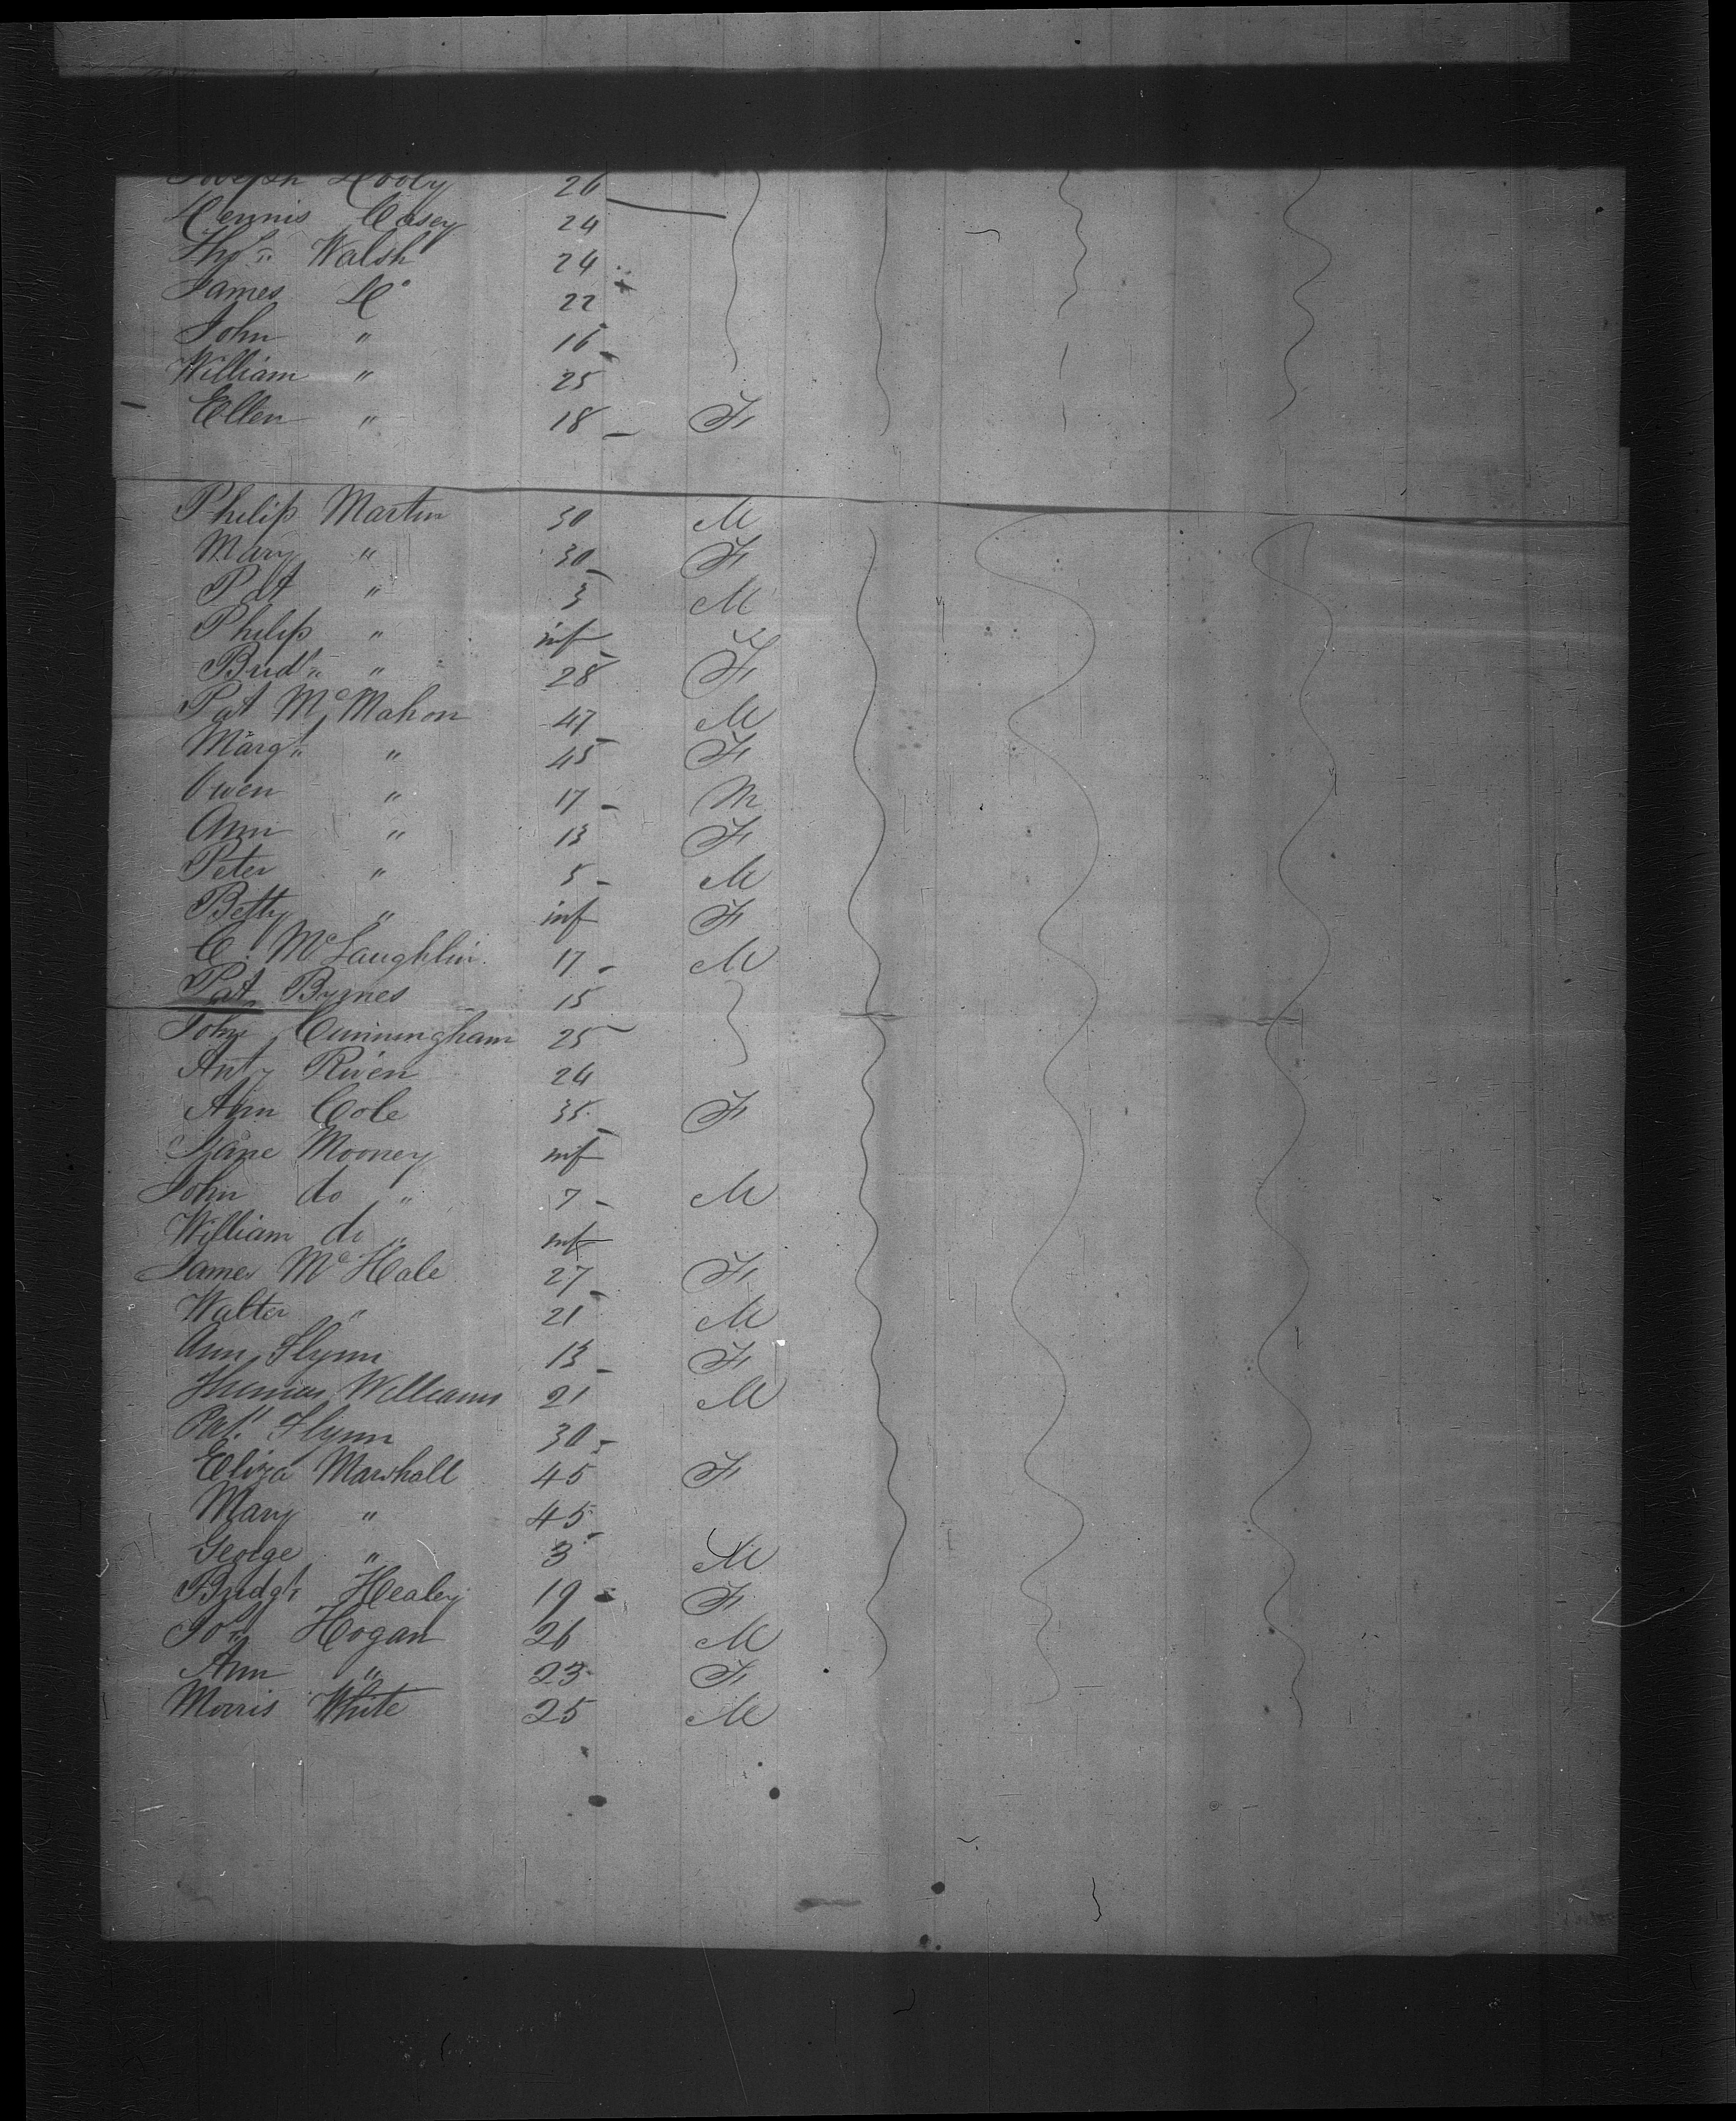 Joseph Hooly 26
Dennis Casey 24
Thos. Walsh 24
James Do 22
John " 16
William " 25
Ellen " 18 F
Philip Martin 30 M
Mary " 30 F
Pat " 3 M
Philip " inf "
Bridt " 28 F
Pat McMahon 47 M
Margt " 45 F
Owen " 17 M
Ann " 13 F
Peter " 5 M
Betty " inf F
C. McLaughlin 17 M
Pat Byrnes 15
John Cunningham 25
Anty Riven 24
Ann Cole 35 F
Jane Mooney inf
John do " 7 M
William do " inf
James McHale 27 F
Walter " 21 M
Ann Flynn 13 F
Thomas Williams 21 M
Pat. Flynn 30
Eliza Marshall 45 F
Mary " 45
George " 3 M
Bridgt Healey 19 F
Jos. Hogan 26 M
Ann " 23 F
Morris White 25 M